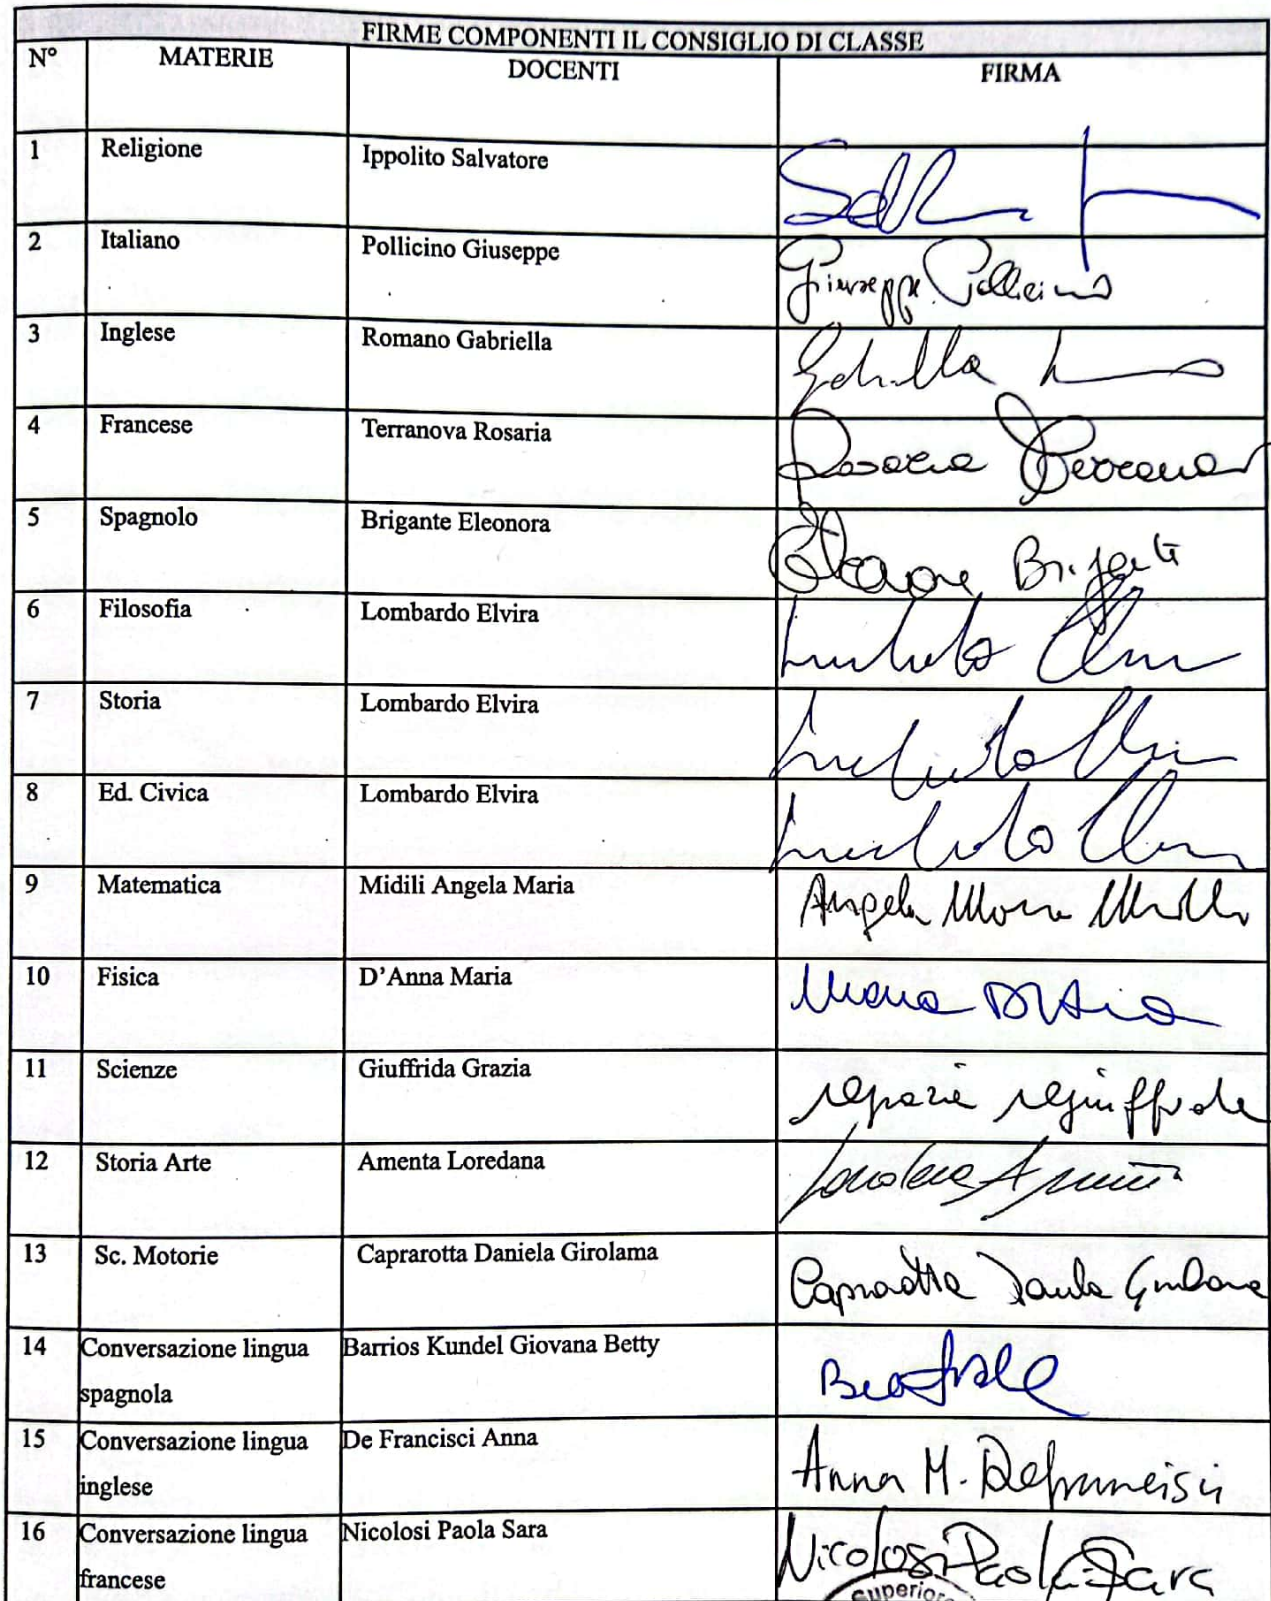 FIRME COMPONENTI IL CONSIGLIO DI CLASSE
N° MATERIE DOCENTI FIRMA
1 Religione Ippolito Salvatore
2 Italiano Pollicino Giuseppe Giuseppe Pollicino
3 Inglese Romano Gabriella
4 Francese Terranova Rosaria Rosaria Terranova
5 Spagnolo Brigante Eleonora Eleonora Brigante
6 Filosofia Lombardo Elvira
7 Storia Lombardo Elvira
8 Ed. Civica Lombardo Elvira
9 Matematica Midili Angela Maria Angela Maria Midili
10 Fisica D'Anna Maria Maria D'Anna
11 Scienze Giuffrida Grazia
12 Storia Arte Amenta Loredana Loredana Amenta
13 Sc. Motorie Caprarotta Daniela Girolama Caprarotta Daniela Girolama
14 Conversazione lingua Barrios Kundel Giovana Betty
spagnola
15 Conversazione lingua De Francisci Anna Anna M. Defrancisci
inglese
16 Conversazione lingua Nicolosi Paola Sara Nicolosi Paola Sara
francese
Superiore